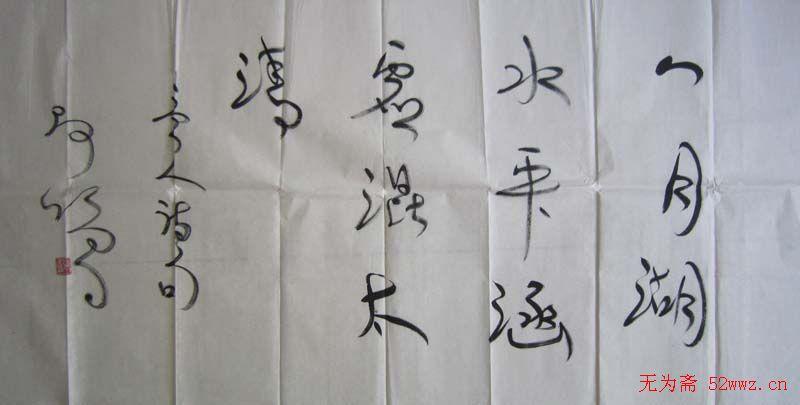 八月湖
水平涵
虚混太
清
人诗句
无为斋 52wwz.cn